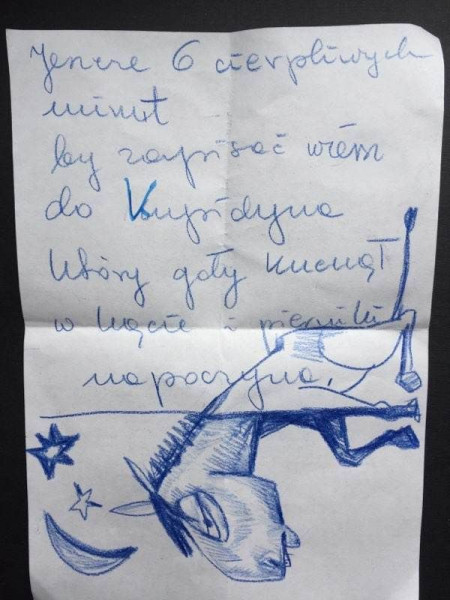 Jeszcze 6 cierpliwych
minut
by zapisać wiersz
do Kupidyna
który goły kucnął
w kącie i pierniki
napoczyna.